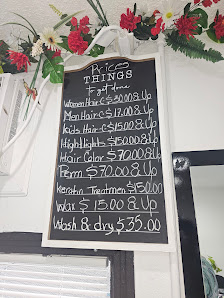 Prices
THINGS
to get done
Women Hair-C $30.00 & Up
Men Hair-C $17.00 & Up
Kids Hair-C $15.00 & Up
Highlights $150.00 & Up
Hair Color $70.00 & Up
Perm $70.00 & Up
Keratin Treatment $150.00
Wax $15.00 & Up
Wash & dry $35.00